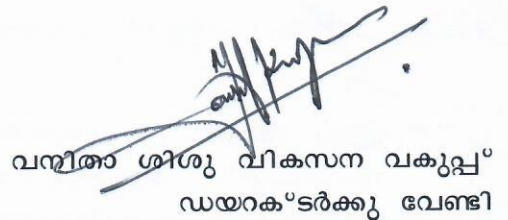 വനിതാ ശിശു വികസന വകുപ്പ്
ഡയറക്ടർക്കു വേണ്ടി